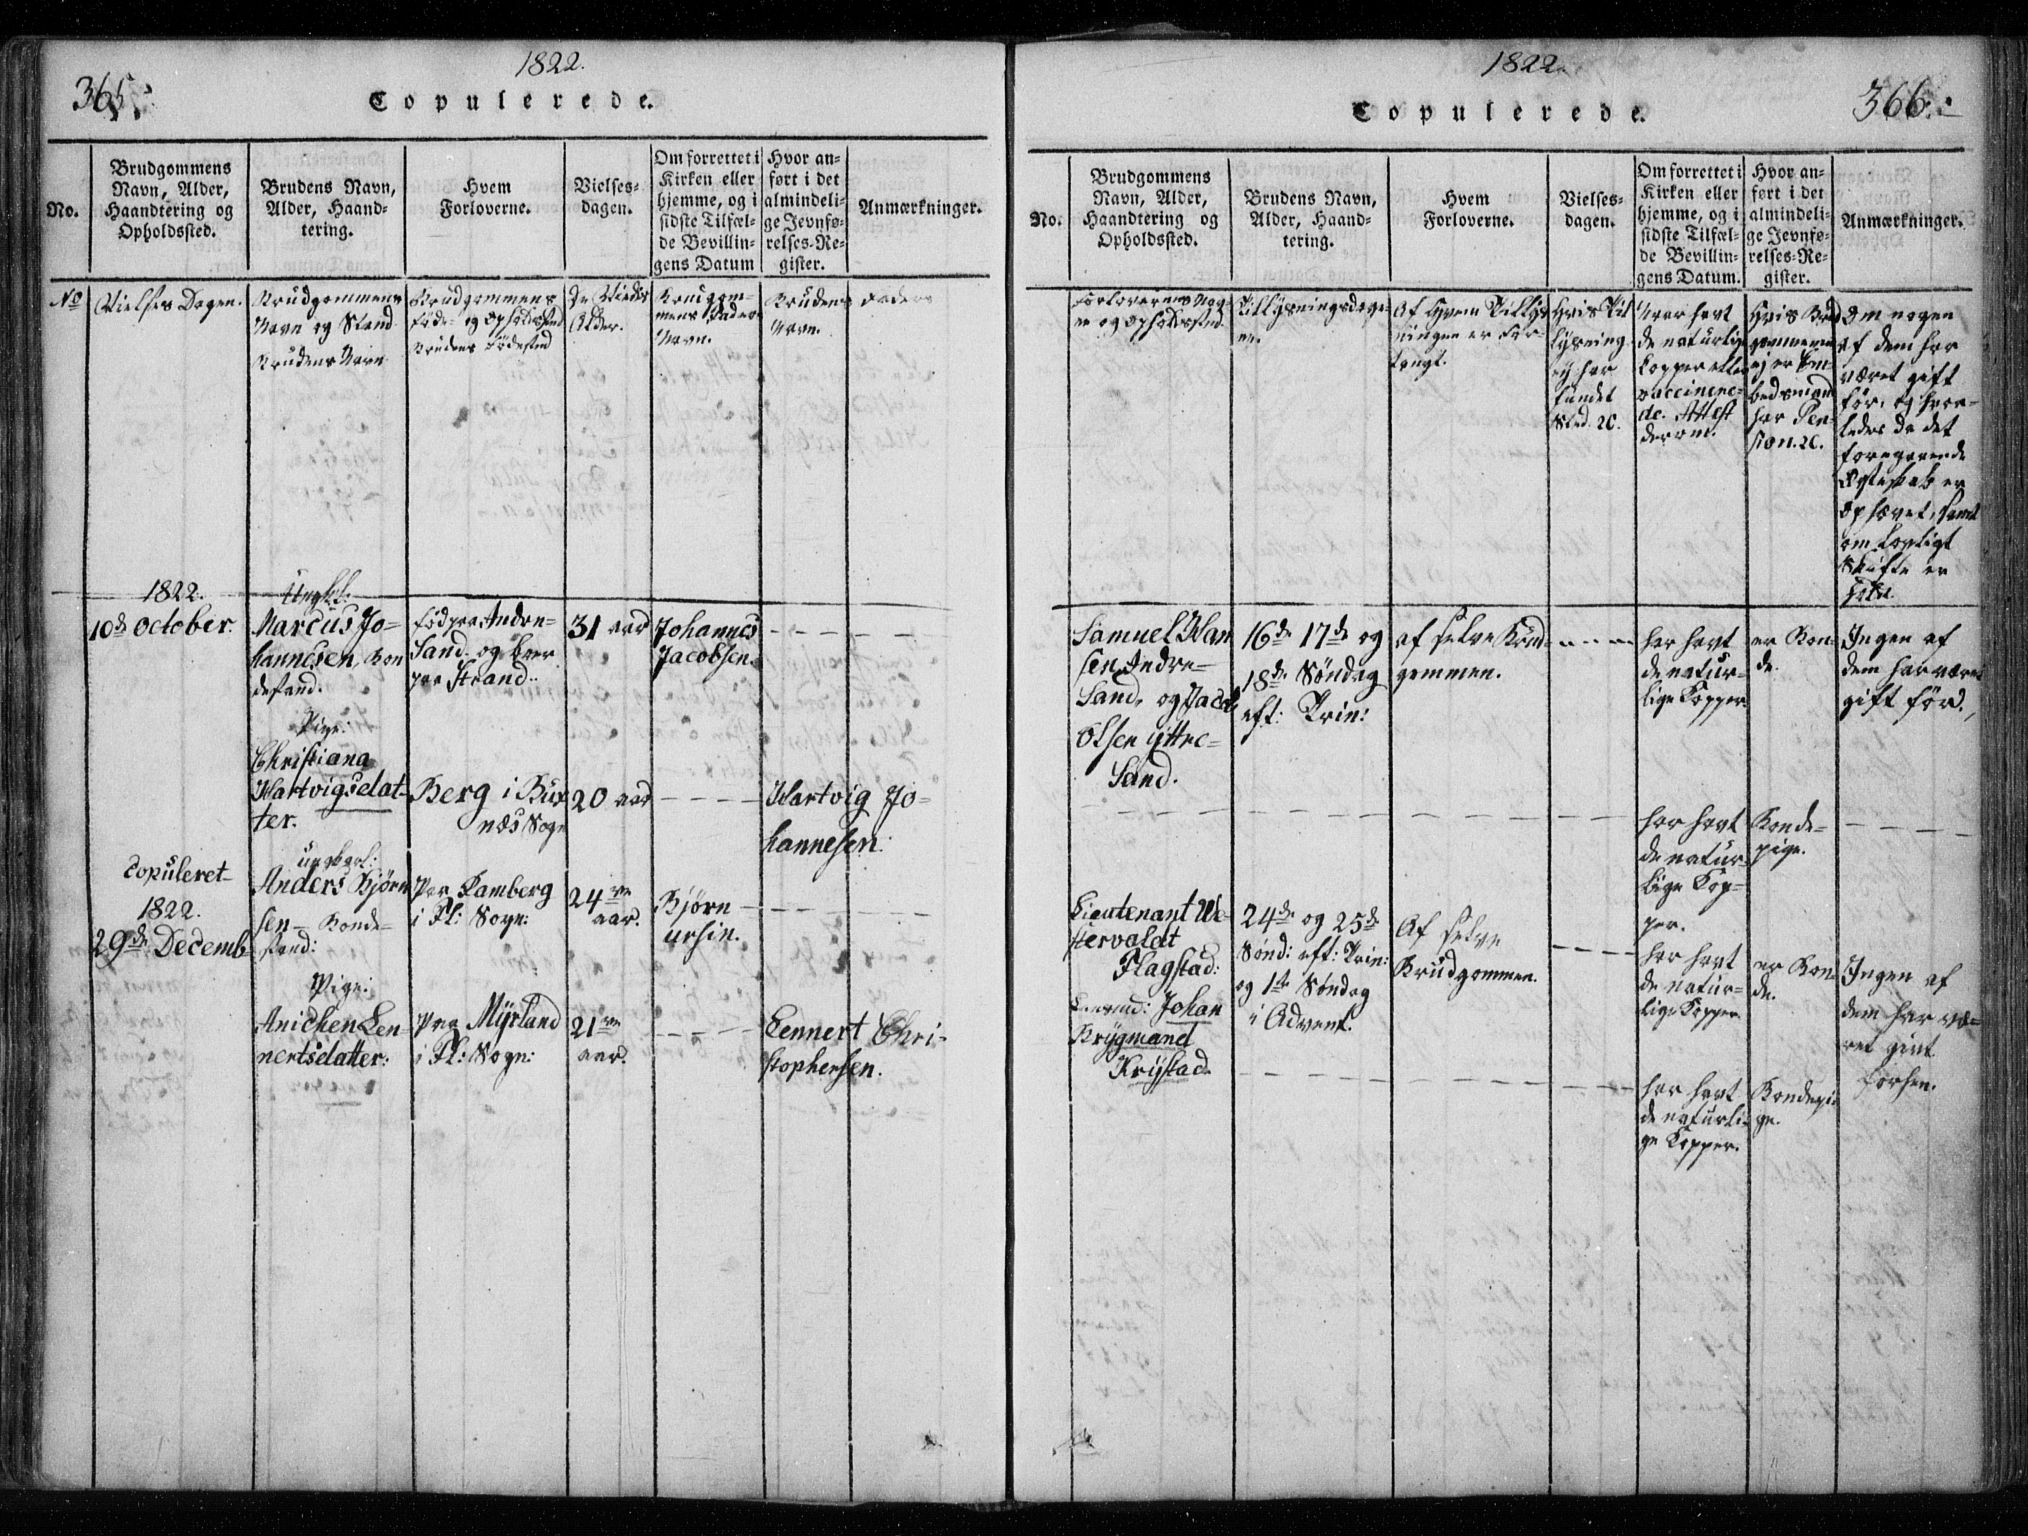 1822.
365.
Copulerede.
No.
Brudgommens
Navn, Alder,
Haandtering og
Opholdssted.
Brudens Navn,
Alder, Haand-
tering.
Hvem
Forloverne.
Vielses-
dagen.
Om forrettet i
Kirken eller
hjemme, og i
sidste Tilfæl-
de Bevillin-
gens Datum
Hvor an-
ført i det
almindeli-
ge Jevnfø-
relses-Re-
gister.
Anmærkninger.
No
Vielses Dagen.
Brudgommens
Navn og Stand
Brudens Navn
Brudgommens
føde- og Opholdssted
Brudens Fødested
De Viedes
Alder.
Brudgom-
mens Faders
Navn.
Brudens Faders
Navn.
1822.
10de October.
Ungkl:
Marcus Jo-
hannesen Bon
destand.
Pige:
Christiana
Hartvigsdat-
ter.
født paa Andon-
Sand og boer
paa Strand.
Berg i Bux
næs Sogn
31 aar
20 aar
Johannes
Jacobsen.
Hartvig Jo-
hannesen.
Copuleret
1822.
29de Decemb
ungkarl:
Anders Bjørn
sen- Bonde-
stand:
Pige:
Anichen Len
nertsdatter:
Paa Ramberg
i Fl: Sogn:
Paa Myrland
i Fl: Sogn:
24ve
aar.
21ve
aar.
Bjørn
ursin.
Lennert Chri-
stophersen.
1822.
366.
Copulerede.
No.
Brudgommens
Navn, Alder,
Haandtering og
Opholdssted.
Brudens Navn,
Alder, Haand-
tering.
Hvem
Forloverne.
Vielses-
dagen.
Om forrettet i
Kirken eller
hjemme, og i
sidste Tilfæl-
de Bevillin-
gens Datum.
Hvor an-
ført i det
almindeli-
ge Jevnfø-
relses-Re-
gister.
Anmærkninger.
Forlovernes Nav
ne og Opholdssted.
Tillysningsdage
ne.
Af hvem Tillys
ningen er for-
langt.
Hvis Til
lysning
ej har
fundet
Sted. 2c.
Hvor havt
de naturlige
Kopper eller
vaccinere-
de. Attest
derom.
Hvis Brud
gommen
ej er Em-
bedsmand
har Pen-
sion. 2c.
Om nogen
af dem har
været gift
før, og hvor-
ledes da det
foregaaende
Egteskab er
ophævet, samt
om lovligt
Skifte er
holdt.
Samuel Han
sen Indre-
Sand, og Jacob
Olsen Yttre-
Sand.
16de 17de og
18de Søndag
eft: Trin:
af selve Brud-
gommen.
har havt
de natur-
lige Kopper
er Bon-
de.
Ingen af
dem har været
gift før.
har havt
de natur-
lige Kop-
per.
Bonde-
pige.
Lieutenant We-
stervaldt
Flagstad:
Johan
Brygmand
Krystad.
24de og 25de
Sønd: eft: Trin:
og 1ste Søndag
i Advent.
Af selve
Brudgommen.
har havt
de natur-
lige Kopper
er Bon-
de.
Ingen af
dem har væ-
ret givt
forhen.
har havt
de naturli-
ge Kopper.
Bondepi-
ge.